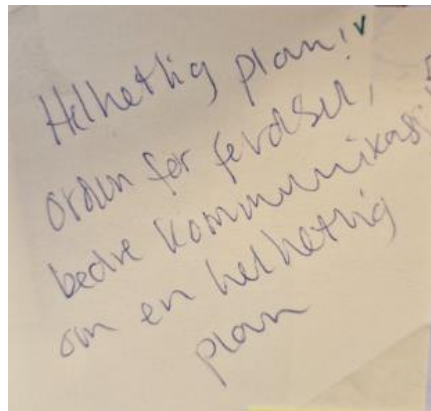 Helhetlig plan!
orden for ferdsel,
bedre kommunikasj
om en helhetlig
plan